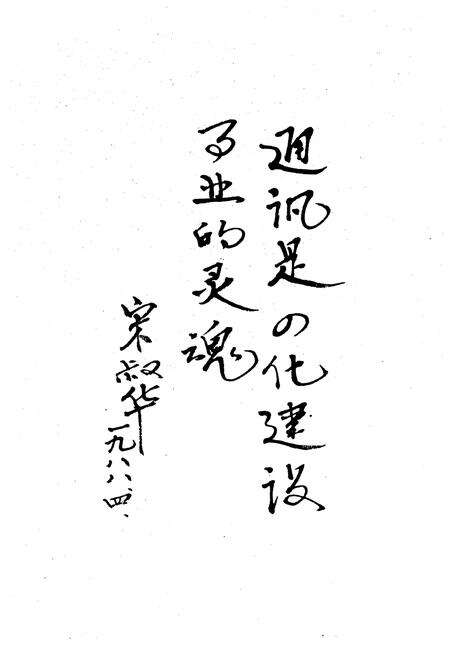 通讯是四化建设
事业的灵魂
宋叔华
一九八八、四、